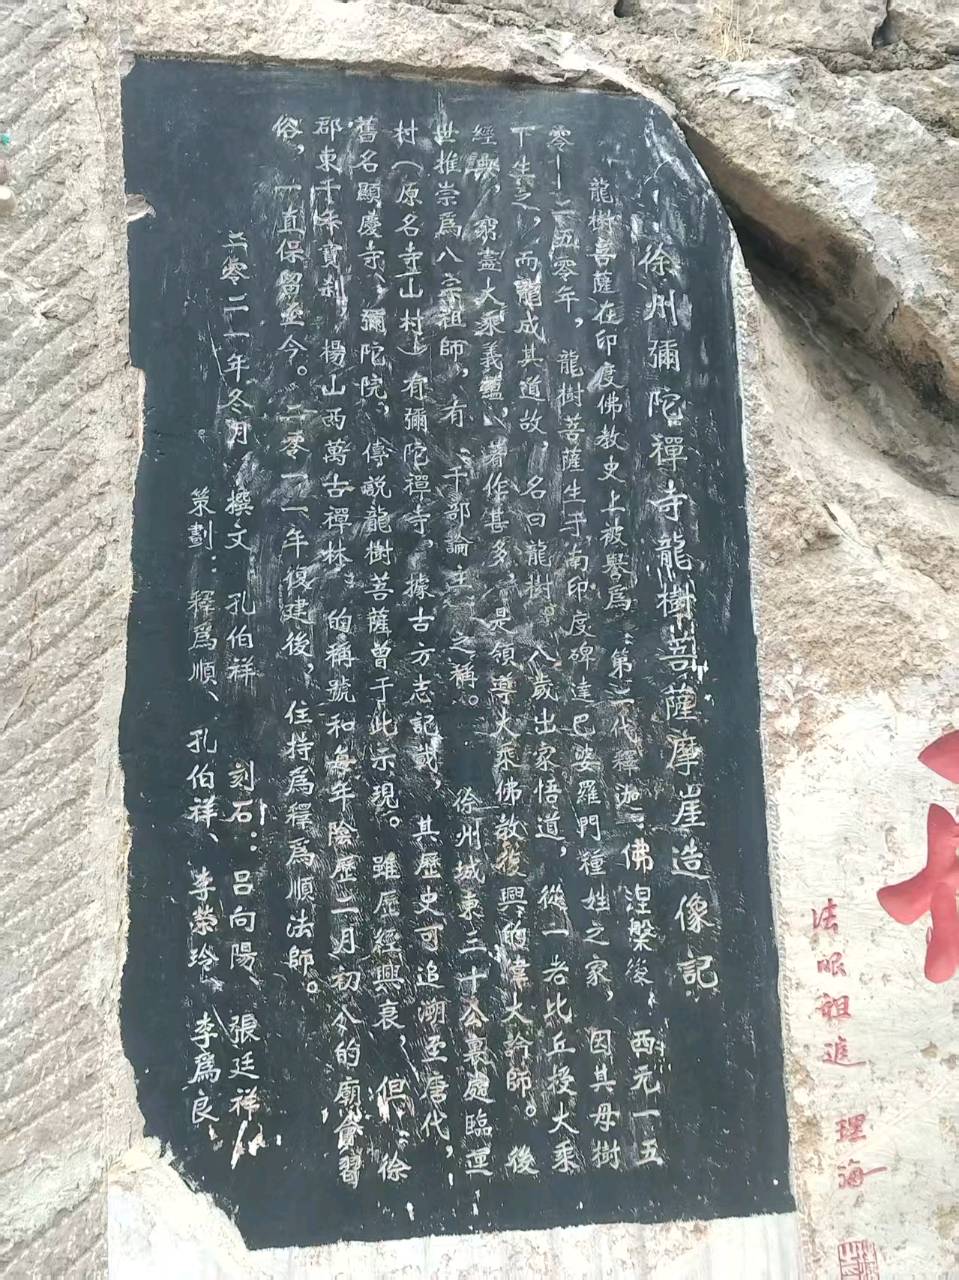 徐州彌陀禪寺龍樹菩薩摩崖造像記
龍樹菩薩在印度佛教史上被譽爲“第二代釋迦”，佛涅槃後，西元一五
零——二五零年，龍樹菩薩生于南印度碑達巴婆羅門種姓之家，因其母樹
下生之，而龍成其道故，名曰龍樹。入歲出家悟道，從一老比丘授大乘
經典，窮盡大乘義蘊，著作甚多，是領導大乘佛教復興的偉大論師。後
世推崇爲八宗祖師，有“千部論主”之稱。徐州城東三十公裏處臨運
村（原名寺山村）有彌陀禪寺，據古方志記載，其歷史可追溯至唐代，
舊名顯慶寺、彌陀院，傳説龍樹菩薩曾于此示現。雖歷經興衰，但“徐
郡東千年寶刹，楊山西萬古禪林”的稱號和每年陰歷二月初八的廟會習
俗，一直保留至今。二零一一年復建後，住持爲釋爲順法師。
二零二一年冬月 撰文 孔伯祥 刻石：呂向陽、張廷祥
策劃：釋爲順、孔伯祥、李榮玲、李爲良
法眼祖進 理海